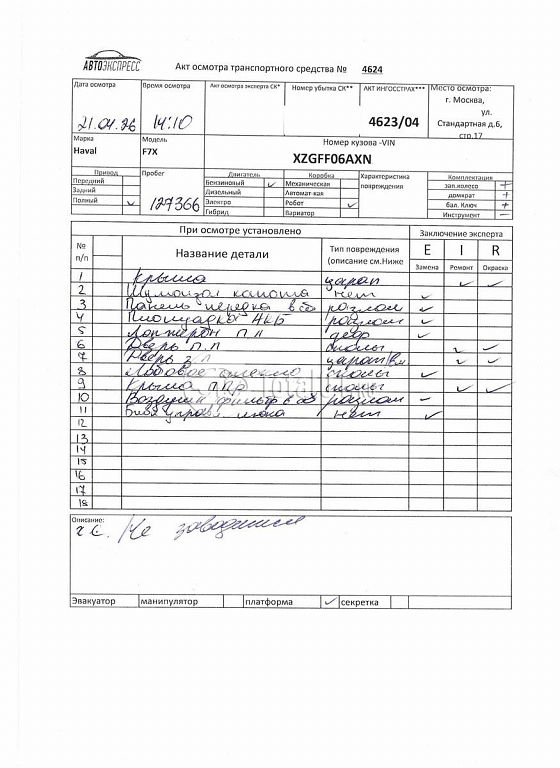 АВТОЭКСПРЕСС
Акт осмотра транспортного средства № 4624
Дата осмотра
21.04.26
Время осмотра
14:10
Акт осмотра эксперта СК*
Номер убытка СК**
АКТ ИНГОССТРАХ***
4623/04
Место осмотра:
г. Москва,
ул.
Стандартная д.6,
стр.17
Марка
Haval
Модель
F7X
Номер кузова -VIN
XZGFF06AXN
Привод
Передний
Задний
Полный ✓
Пробег
127366
Двигатель
Бензиновый ✓
Дизельный
Электро
Гибрид
Коробка
Механическая
Автомат-кая
Робот ✓
Вариатор
Характеристика
повреждения
Комплектация
зап.колесо +
домкрат +
бал. Ключ +
Инструмент —
При осмотре установлено
Заключение эксперта
№
п/п
Название детали
Тип повреждения
(описание см.Ниже
E I R
Замена Ремонт Окраска
1 Крыша царап ✓ ✓
2 Шумоизол капота нет ✓
3 Панель передка в сб разлом ✓
4 АКБ разлом ✓
5 Лонжерон п л деф ✓
6 Дверь п.л сколы ✓ ✓
7 Дверь з л царап ✓ ✓
8 Лобовое стекло сколы ✓
9 Крыша сколы ✓ ✓
10 Воздушн фильтр в сб разлом ✓
11 люка нет ✓
12
13
14
15
16
17
18
Описание:
Не заводится
Эвакуатор манипулятор платформа ✓ секретка